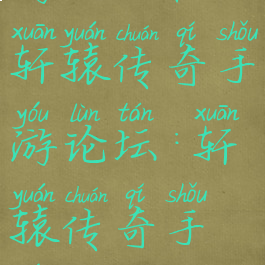 xuān yuán chuán qí shǒu
轩辕传奇手
yóu lùn tán xuān
游论坛:轩
yuán chuán qí shǒu
辕传奇手